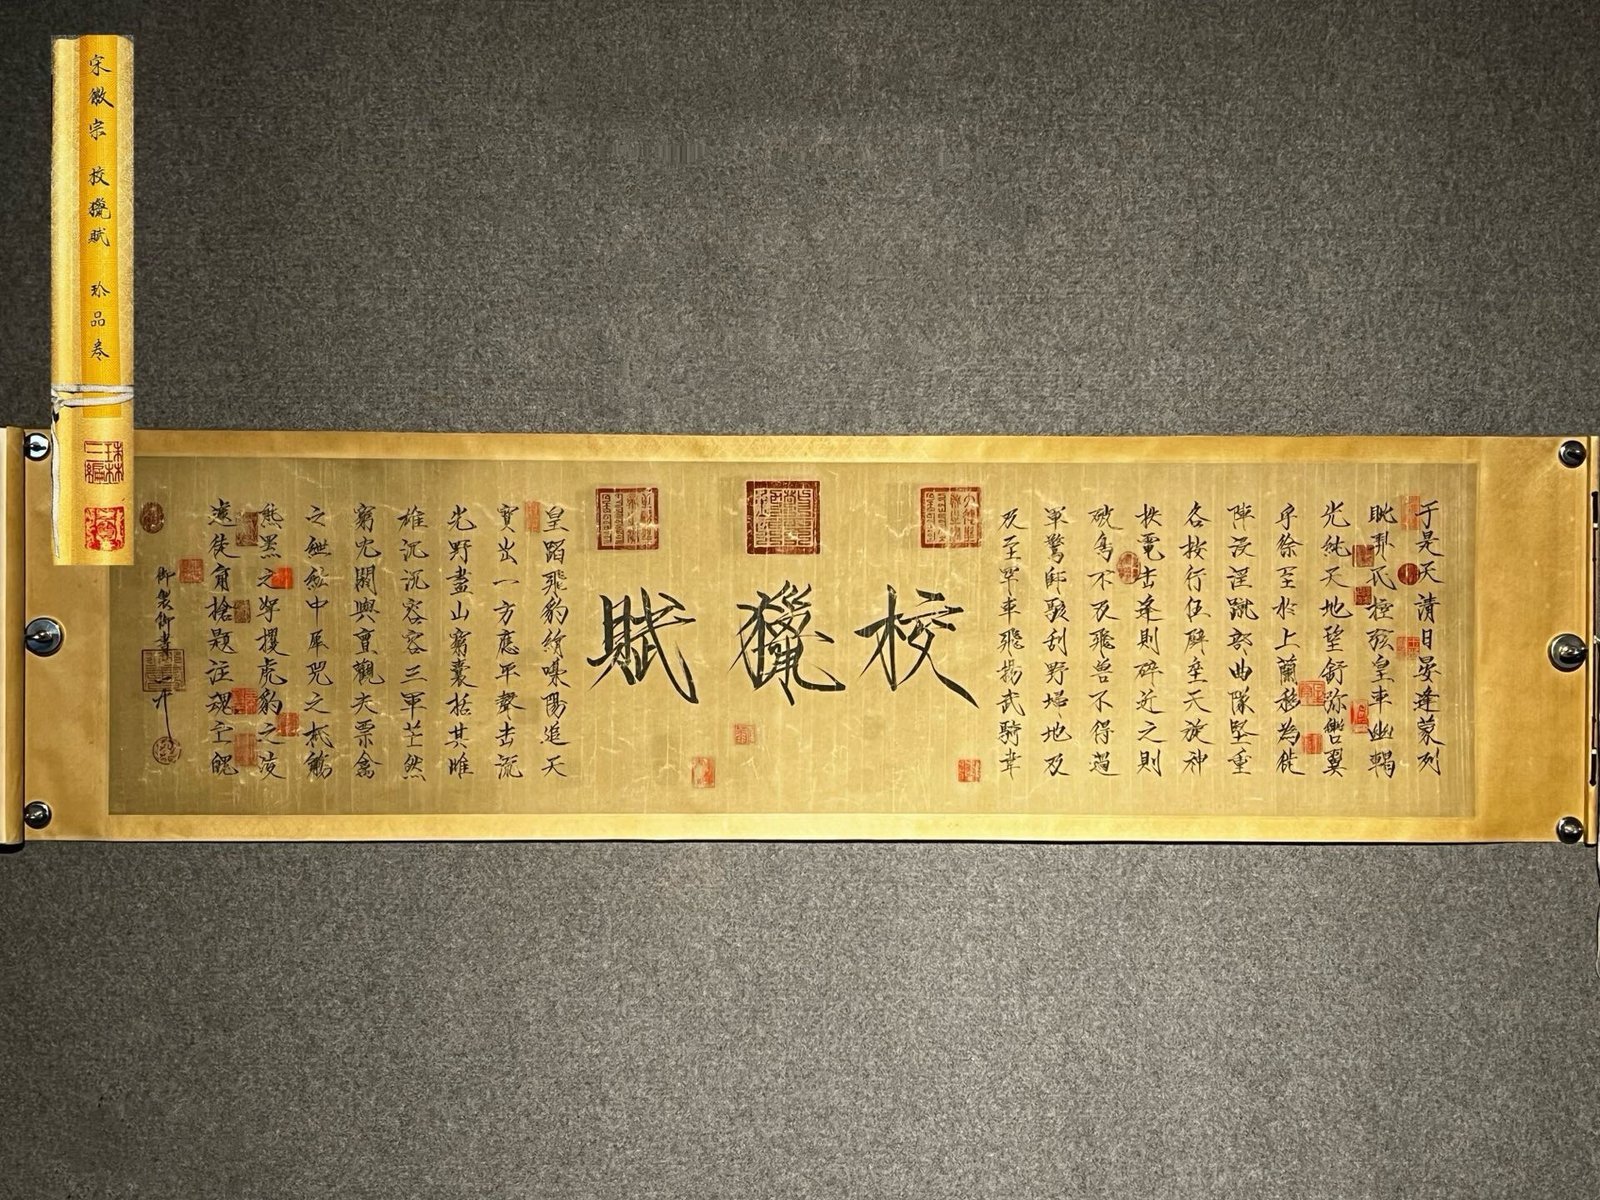 宋徽宗 校獵賦 珍品卷
于是天清日晏逢蒙列
眦羿氏控弦皇車幽輵
光純天地望舒弥轡翼
乎徐至於上蘭移為徙
陣浸淫蹴部曲隊堅重
各按行伍壁壘天旋神
抶電击逢則碎近之則
破鳥不及飛兽不得過
军驚師駭刮野埽地及
及至罕車飛揚武騎聿
校獵賦
皇蹈飛豹絹嘄陽追天
寳出一方應平聲击流
光野盡山窮囊括其雌
雄沉沉容容三軍芒然
窮冘閼與亶觀夫票禽
之紲紭中犀兕之柢觞
熊羆之挐攫虎豹之凌
遽徒角槍題注魂亡魄
御製御書